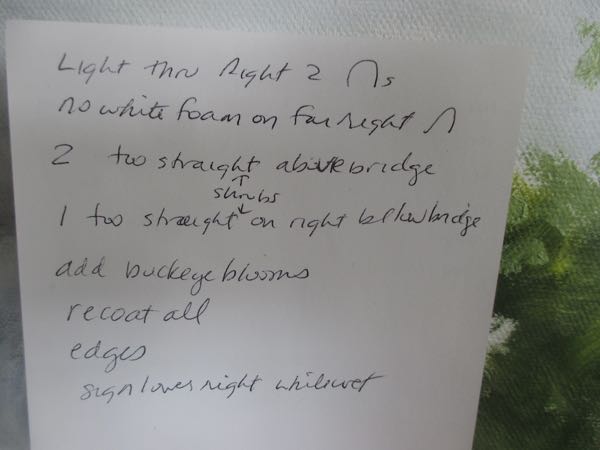 Light thru right 2 ∩s
no white foam on far right ∩
2 too straight above bridge
↑
shrubs
↓
1 too straight on right below bridge
add buckeye blooms
recoat all
edges
sign lower right while wet